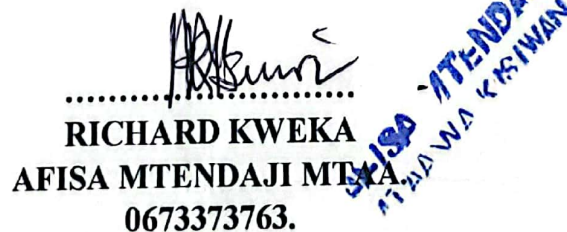 RICHARD KWEKA
AFISA MTENDAJI MTAA.
0673373763.
MTAA WA KISIWANI